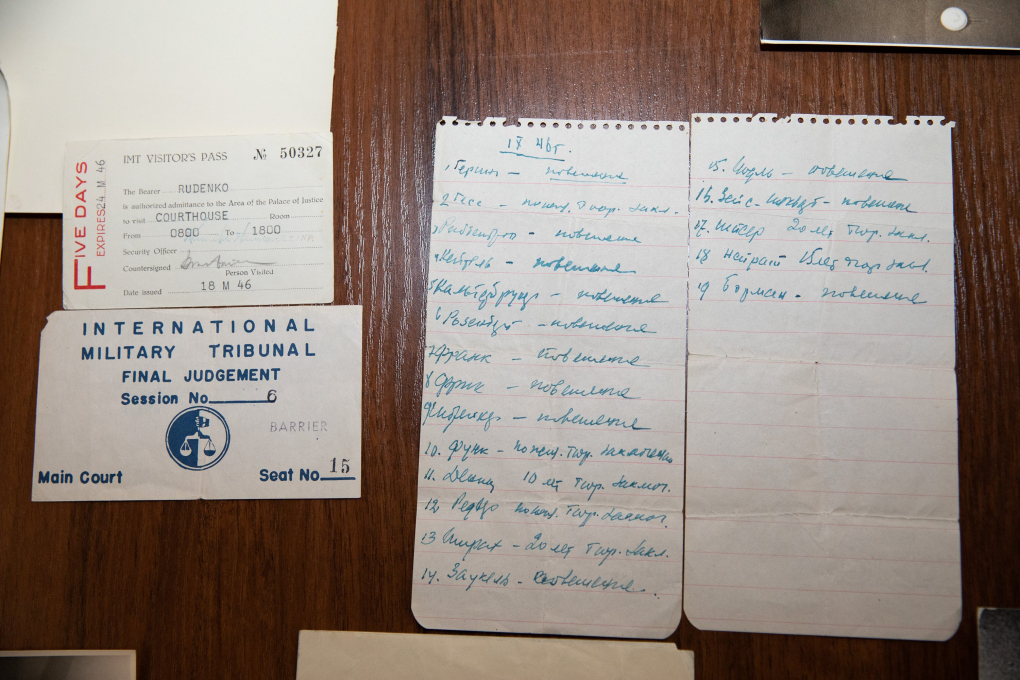 FIVE DAYS
EXPIRES 24 M 46
IMT VISITOR'S PASS № 50327
The Bearer RUDENKO
is authorized admittance to the Area of the Palace of Justice
to visit COURTHOUSE Room
From 0800 To 1800
Security Officer
Countersigned
Person Visited
Date issued 18 M 46
INTERNATIONAL
MILITARY TRIBUNAL
FINAL JUDGEMENT
Session No. 6
BARRIER
Main Court Seat No. 15
46г.
1 Геринг – повешение
2 Гесс – пожизн. тюр. закл.
3 Риббентроп – повешение
4 Кейтель – повешение
5 Кальтенбрунер – повешение
6 Розенберг – повешение
7 Франк – повешение
8 Фрик – повешение
9 – повешение
10. Функ – пожизн. тюр. заключение
11. Дениц 10 лет тюр. заключ.
12 Редер пожизн. тюр. заключ.
13 Ширах – 20 лет тюр. закл.
14. Заукель – повешение
15. Иодль – повешение
16. Зейс-Инкварт – повешение
17. 20 лет тюр. закл.
18 Нейрат 15 лет тюр. закл.
19 Борман – повешение